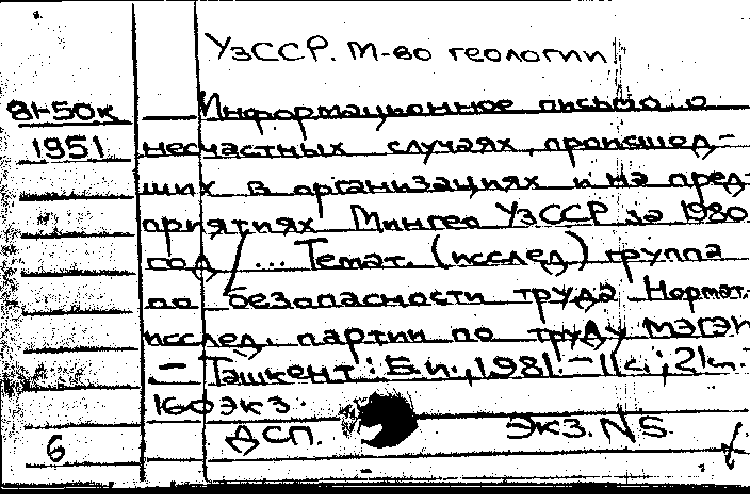 УзССР. М-во геологии.
81-50к Информационное письмо о
1951 несчастных случаях, происшед-
ших в организациях и на пред-
приятиях Мингео УзССР за 1980
год / ... Темат. (исслед) группа
по безопасности труда Нормат.
исслед. партии по труду МЭГЭИ
– Ташкент: Б.и., 1981. – 11с.; 21см.
160экз.
6 ДСП. Экз. N5.